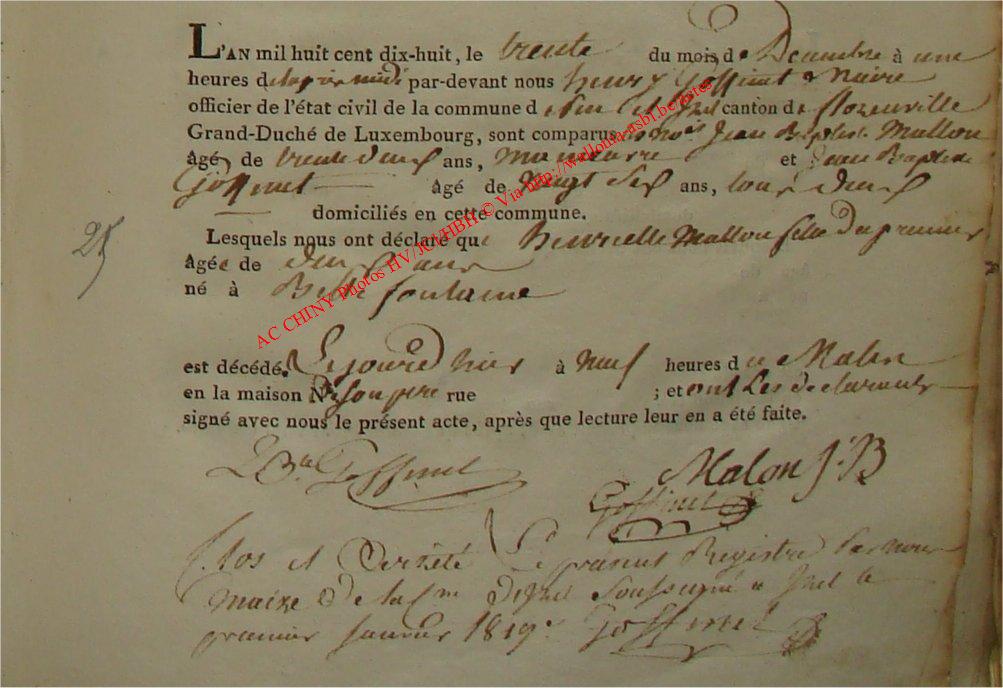 L'AN mil huit cent dix-huit, le trente du mois de Decembre à une
heures de par-devant nous henry Goffinet Maire
officier de l'état civil de la commune d canton de florenville
Grand-Duché de Luxembourg, sont comparus Jean Baptiste Mallon
âgé de trente deux ans, et Jean Baptiste
Goffinet âgé de vingt six ans, tous deux
domiciliés en cette commune.
Lesquels nous ont déclaré que Henriette Mallon fille du premier
âgée de deux ans
né à Belle fontaine
25
est décédé Le jourd hier à neuf heures du Matin
en la maison N° de son pere rue ; et ont Les declarants
signé avec nous le présent acte, après que lecture leur en a été faite.
Goffinet Malon J:B
Goffinet
Clos et Le present Registre Par nous
Maire de la soussigné a le
premier janvier 1819. Goffinet
AC CHINY Photos HV/JCI/HBH © Via http://wallonia-asbl.be/actes